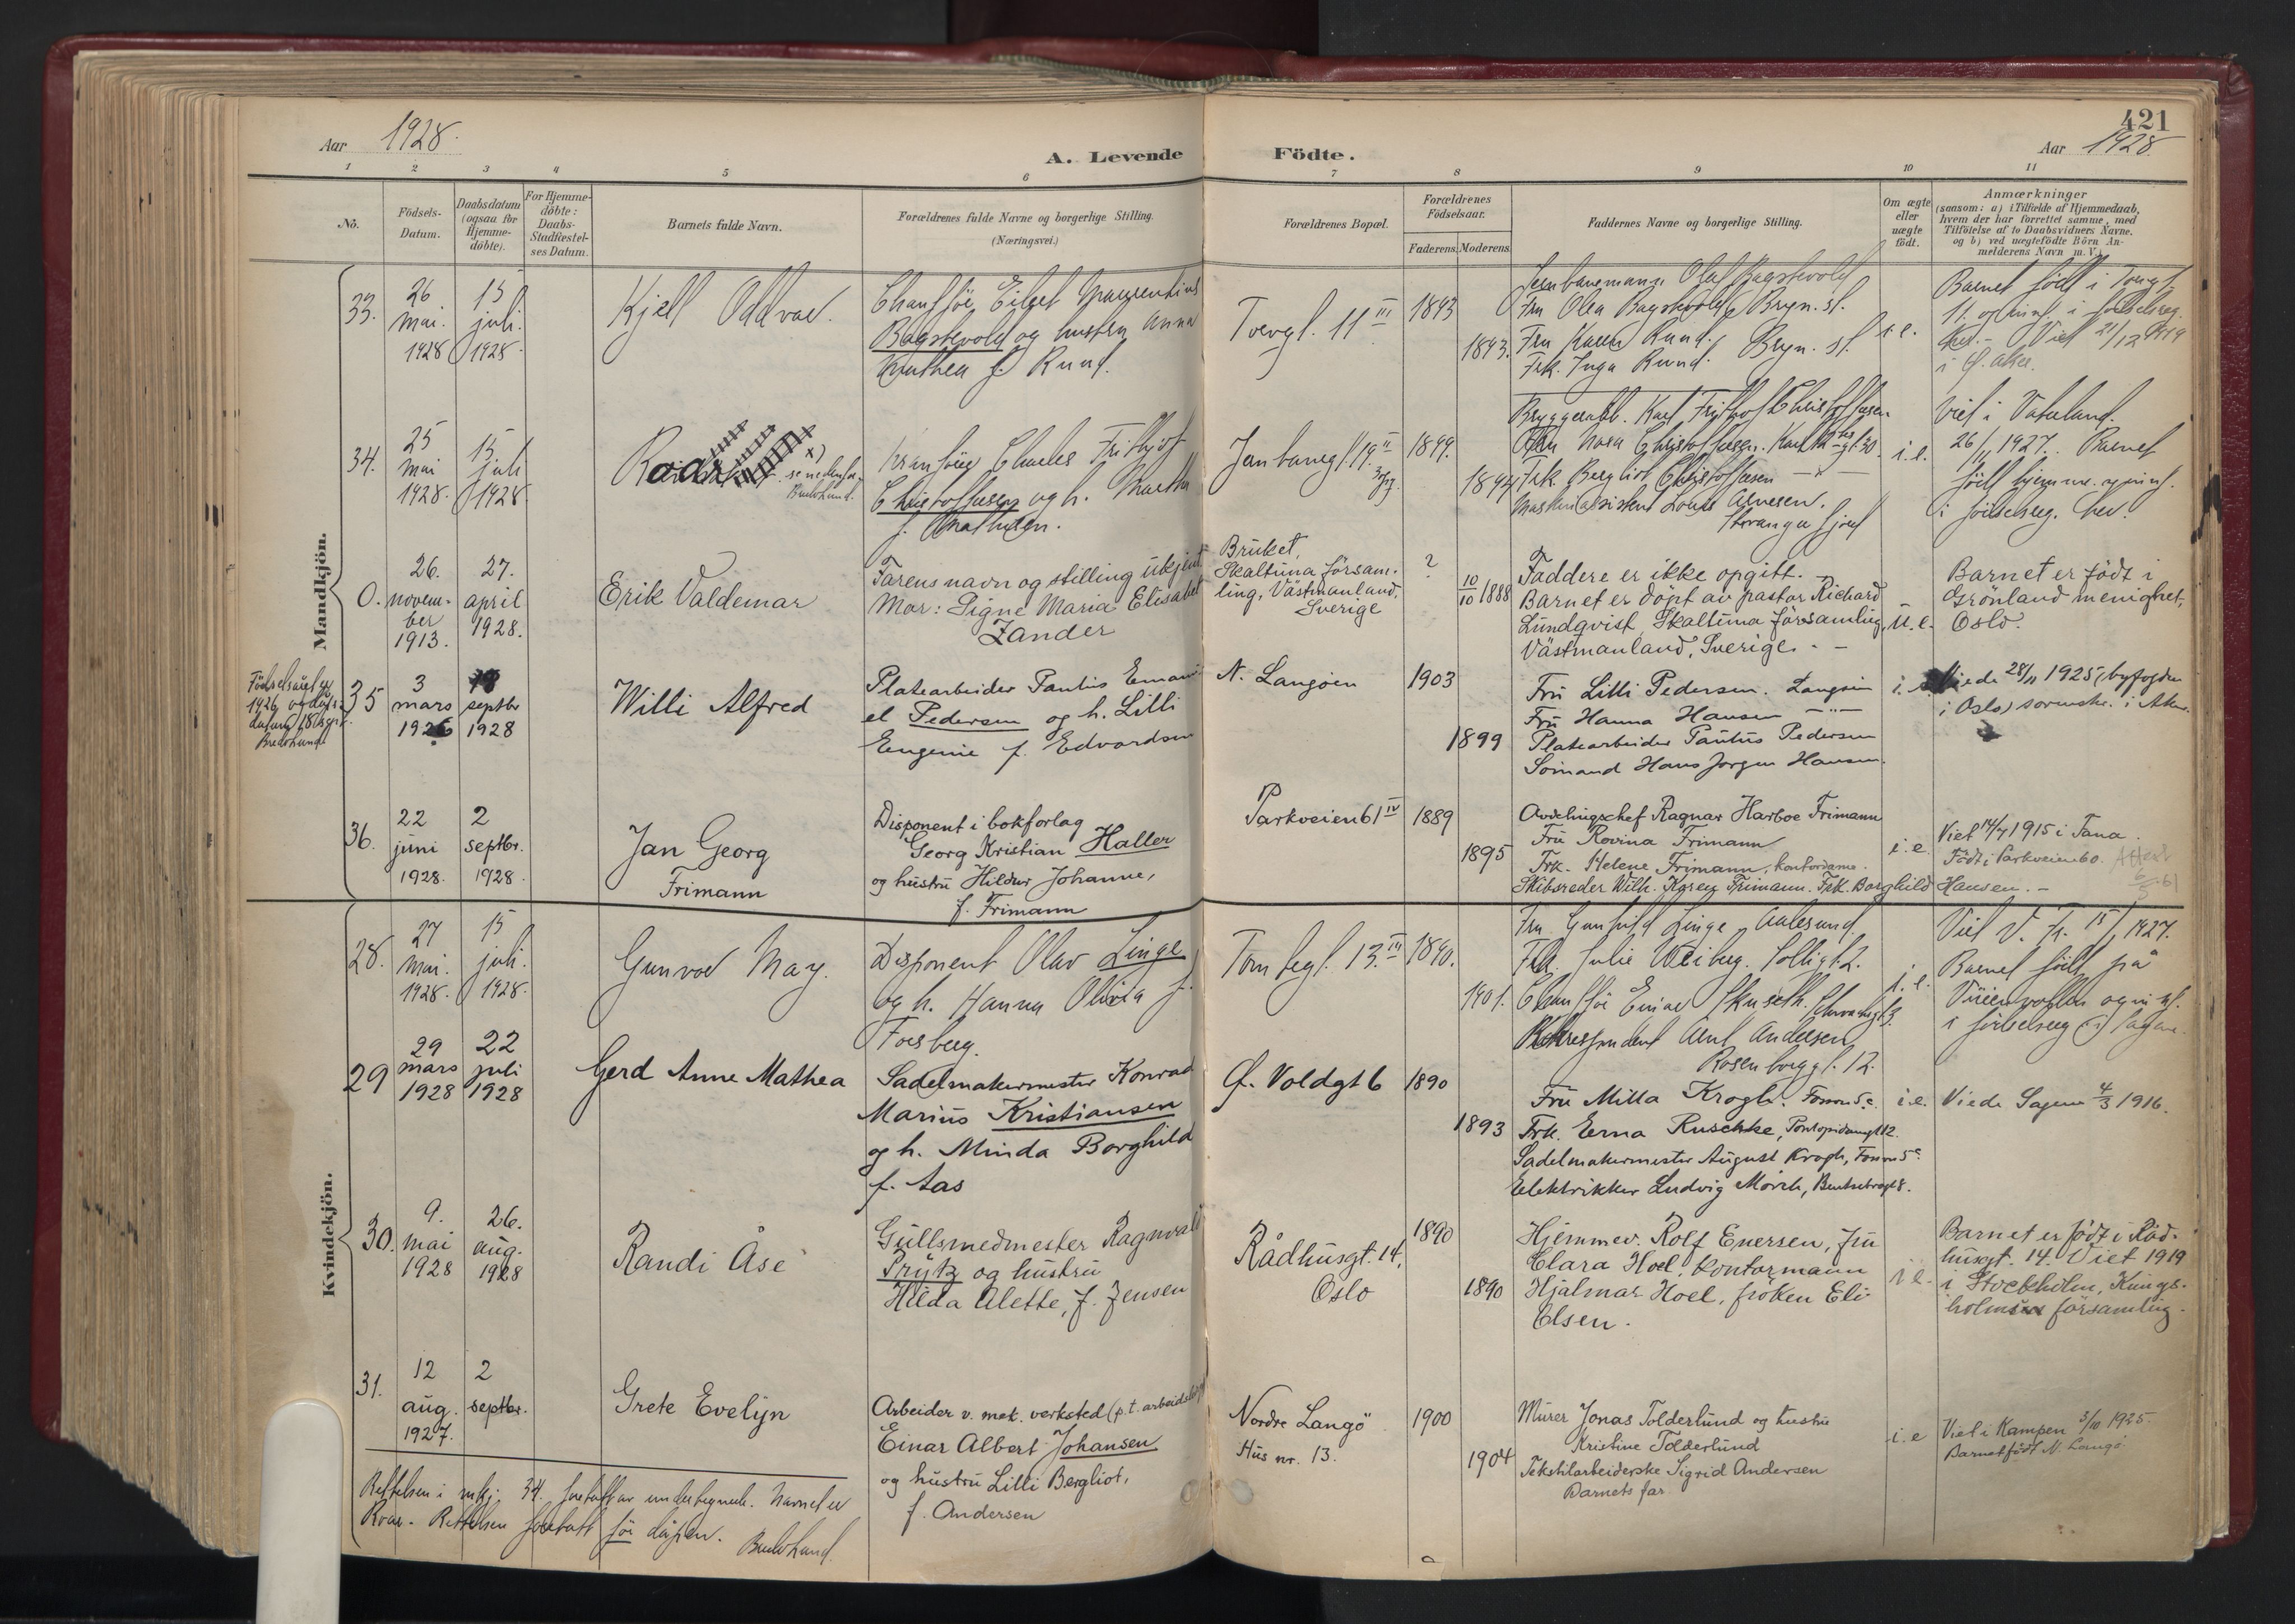 Aar 1928.
A. Levende Födte.
421
Aar 1928.
1 2 3 4 5 6 7 8 9 10 11
No.
Födsels-
Datum.
Daabsdatum
(ogsaa for
Hjemme-
döbte).
For Hjemme-
döbte:
Daabs-
Stadfæstel-
ses Datum.
Barnets fulde Navn.
Forældrenes fulde Navne og borgerlige Stilling.
(Næringsvei.)
Forældrenes Bopæl.
Forældrenes
Födselsaar.
Faderens. Moderens.
Faddernes Navne og borgerlige Stilling.
Om ægte
eller
uægte
födt.
Anmærkninger
(saasom: a) i Tilfælde af Hjemmedaab,
hvem der har forrettet samme, med
Tilföielse af to Daabsvidners Navne.
og b) ved uægtefödte Börn An-
melderens Navn m. V.)
Mandkjön.
33.
26
mai.
1928
15
juli.
1928.
Kjell Oddvar.
Chauffør Eilget
Bagstevold og hustru Anna
Mathea f. Rund.
Torvgt. 11 III
1893
1893.
Jernbanemann Olaf Bagstevold
Fru Olea Bagstevold Bryn. st.
Fru Karen Rund.
Frk. Inga Rund. Bryn. st.
i.e.
Barnet født i Torvgt.
11. og innf. i fødselsreg.
her. - Viet 21/12 1919
i Ø. Aker.
34.
25
mai
1928.
15
juli
1928.
Roar
x)
se nedenfor.
Charles Frithjof
Christoffersen og h. Martha
f. Mathisen.
Jernbanegt. 19 II
1899.
1894
Bryggeriarb. Karl Frithjof Christoffersen
Fru Nora Christoffersen.
Frk. Bergliot Christoffersen
Maskinassistent Louis Arnesen.
i.e.
Viet i Vaterland.
26/11 1927. Barnet
født hjemme. og innf.
i fødselsreg. her.
0.
26.
novem-
ber
1913.
27.
april
1928.
Erik Valdemar
Farens navn og stilling ukjent
Mor: Signe Maria Elisabet
Zander
Bruket,
Skaltuna försam-
ling, Västmanland,
Sverige
?
10/10 1888
Faddere er ikke opgitt. -
Barnet er döpt av pastor Richard
Lundqvist, Skaltuna församling,
Västmanland, Sverige. -
u.e.
Barnet er födt i
Grönland menighet,
Oslo.
Födselsåret er
1926 og dåps-
datum 18
35
3
mars
1926
septbr
1928
Willi Alfred
Platearbeider Paulus Emanu-
el Pedersen og h. Lilli
Eugenie f. Edvardsen
N. Langøen
1903
1899
Fru Lilli Pedersen. Langøen
Fru Hanna Hansen —"—
Platearbeider Paulus Pedersen
Sømand Hans Jørgen Hansen.
Viede 28/11 1925 (byfogden
i Oslo) sorenskr. i Aker.
36.
22
juni
1928.
2
septbr.
1928.
Jan Georg
Frimann
Disponent i bokforlag
Georg Kristian Haller
og hustru Hildur Johanne,
f. Frimann
Parkveien 61 IV
1889
1895
Avdelingschef Ragnar Harboe Frimann
Fru Rovina Frimann
Frk. Helene Frimann, kontordame.
Skibsreder Wilh. Kgrey Frimann. Frk. Borghild Hansen. -
i.e.
Viet 14/7 1915 i Tana.
Födt i Parkveien 60. Attest
6/5 61
Kvindekjön.
28.
27
mai.
1928.
15
juli.
1928.
Gunvor May.
Disponent Olav Linge
og h. Hanna Olivia f.
Forsberg.
Tomtegt. 13 III
1890.
1901.
Fru Gunhild Linge, Aalesund.
Frk. Julie Weiberg. Solligt. 2.
Chauffør Einar
Korrespondent Arnt Andersen
Rosenborggt. 12.
i.e.
Viet V. Fr. 1927.
Barnet født på
Ullevål og innf.
i fødselsreg. i Sagene.
29
29
mars
1928
22
juli
1928
Gerd Anne Mathea
Sadelmakermester Konrad
Marius Kristiansen
og h. Minda Borghild
f. Aas
Ø. Voldgt 6
1890
1893
Fru Milla Krogh.
Frk. Erna Ruschke, Pontopidansgt 12.
Sadelmakermester August Krogh,
Elektrikker Ludvig Mørch,
i.e.
Viede Sagene 4/3 1916.
30.
9.
mai
1928
26.
aug.
1928
Randi Åse
Gullsmedmester Ragnvald
Prytz og hustru
Hilda Alette, f. Jensen
Rådhusgt. 14,
Oslo
1890
1890
Hjemmev. Rolf Enersen, fru
Clara Hoel, kontormann
Hjalmar Hoel, fröken Eli
Olsen.
i.e.
Barnet er födt i Råd-
husgt. 14. Viet 1919
i Stockholm, Kungs-
holmens församling.
31.
12
aug.
1927.
2
septbr.
Grete Evelyn
Arbeider v. mek. verksted (p.t. arbeidsledig)
Einar Albert Johansen
og hustru Lilli Bergliot,
f. Andersen
Nordre Langö
Hus nr. 13.
1900
1904
Murer Jonas Tolderlund og hustru
Kristine Tolderlund
Tekstilarbeiderske Sigrid Andersen
Barnets far.
i.e
Viet i Kampen 3/10 1925.
Barnet födt N. Langö
Rettelsen i mkj. 34. foretatt av undertegnede. Navnet er
Roar. Rettelsen foretatt før dåpen.